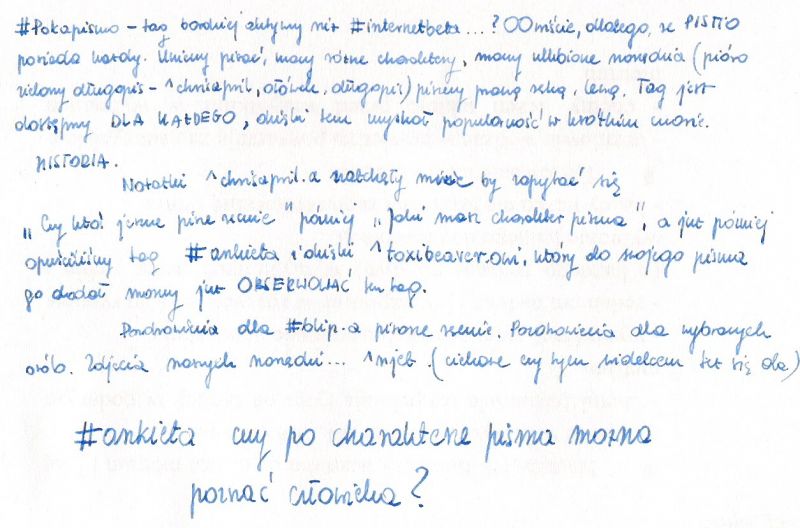 #Pokapismo - tag bardziej aktywny niż #internetbeta...? OOmście, dlatego, że PISMO
posiada każdy. Umiemy pisać, mamy różne charaktery, mamy ulubione narzędzia (pióro
zielony długopis - ^chrisapril, ołówek, długopis) piszemy prawą ręką, lewą. Tag jest
dostępny DLA KAŻDEGO, dzięki temu zyskał popularność w krótkim czasie.
HISTORIA.
Notatki ^chrisapril.a natchnęły mnie by zapytać się
„Czy ktoś jeszcze pisze ręcznie" później „Jaki masz charakter pisma", a już później
opuściliśmy tag #ankieta i dzięki ^toxibeaver.owi, który do swojego pisma
go dodał mamy już OBSERWOWAĆ ten tag.
Pozdrowienia dla #blip.a pisane ręcznie. Pozdrowienia dla wybranych
osób. Zdjęcia naszych narzędzi... ^njet. (ciekawe czy tym widelcem też się da)
#ankieta czy po charakterze pisma można
poznać człowieka?